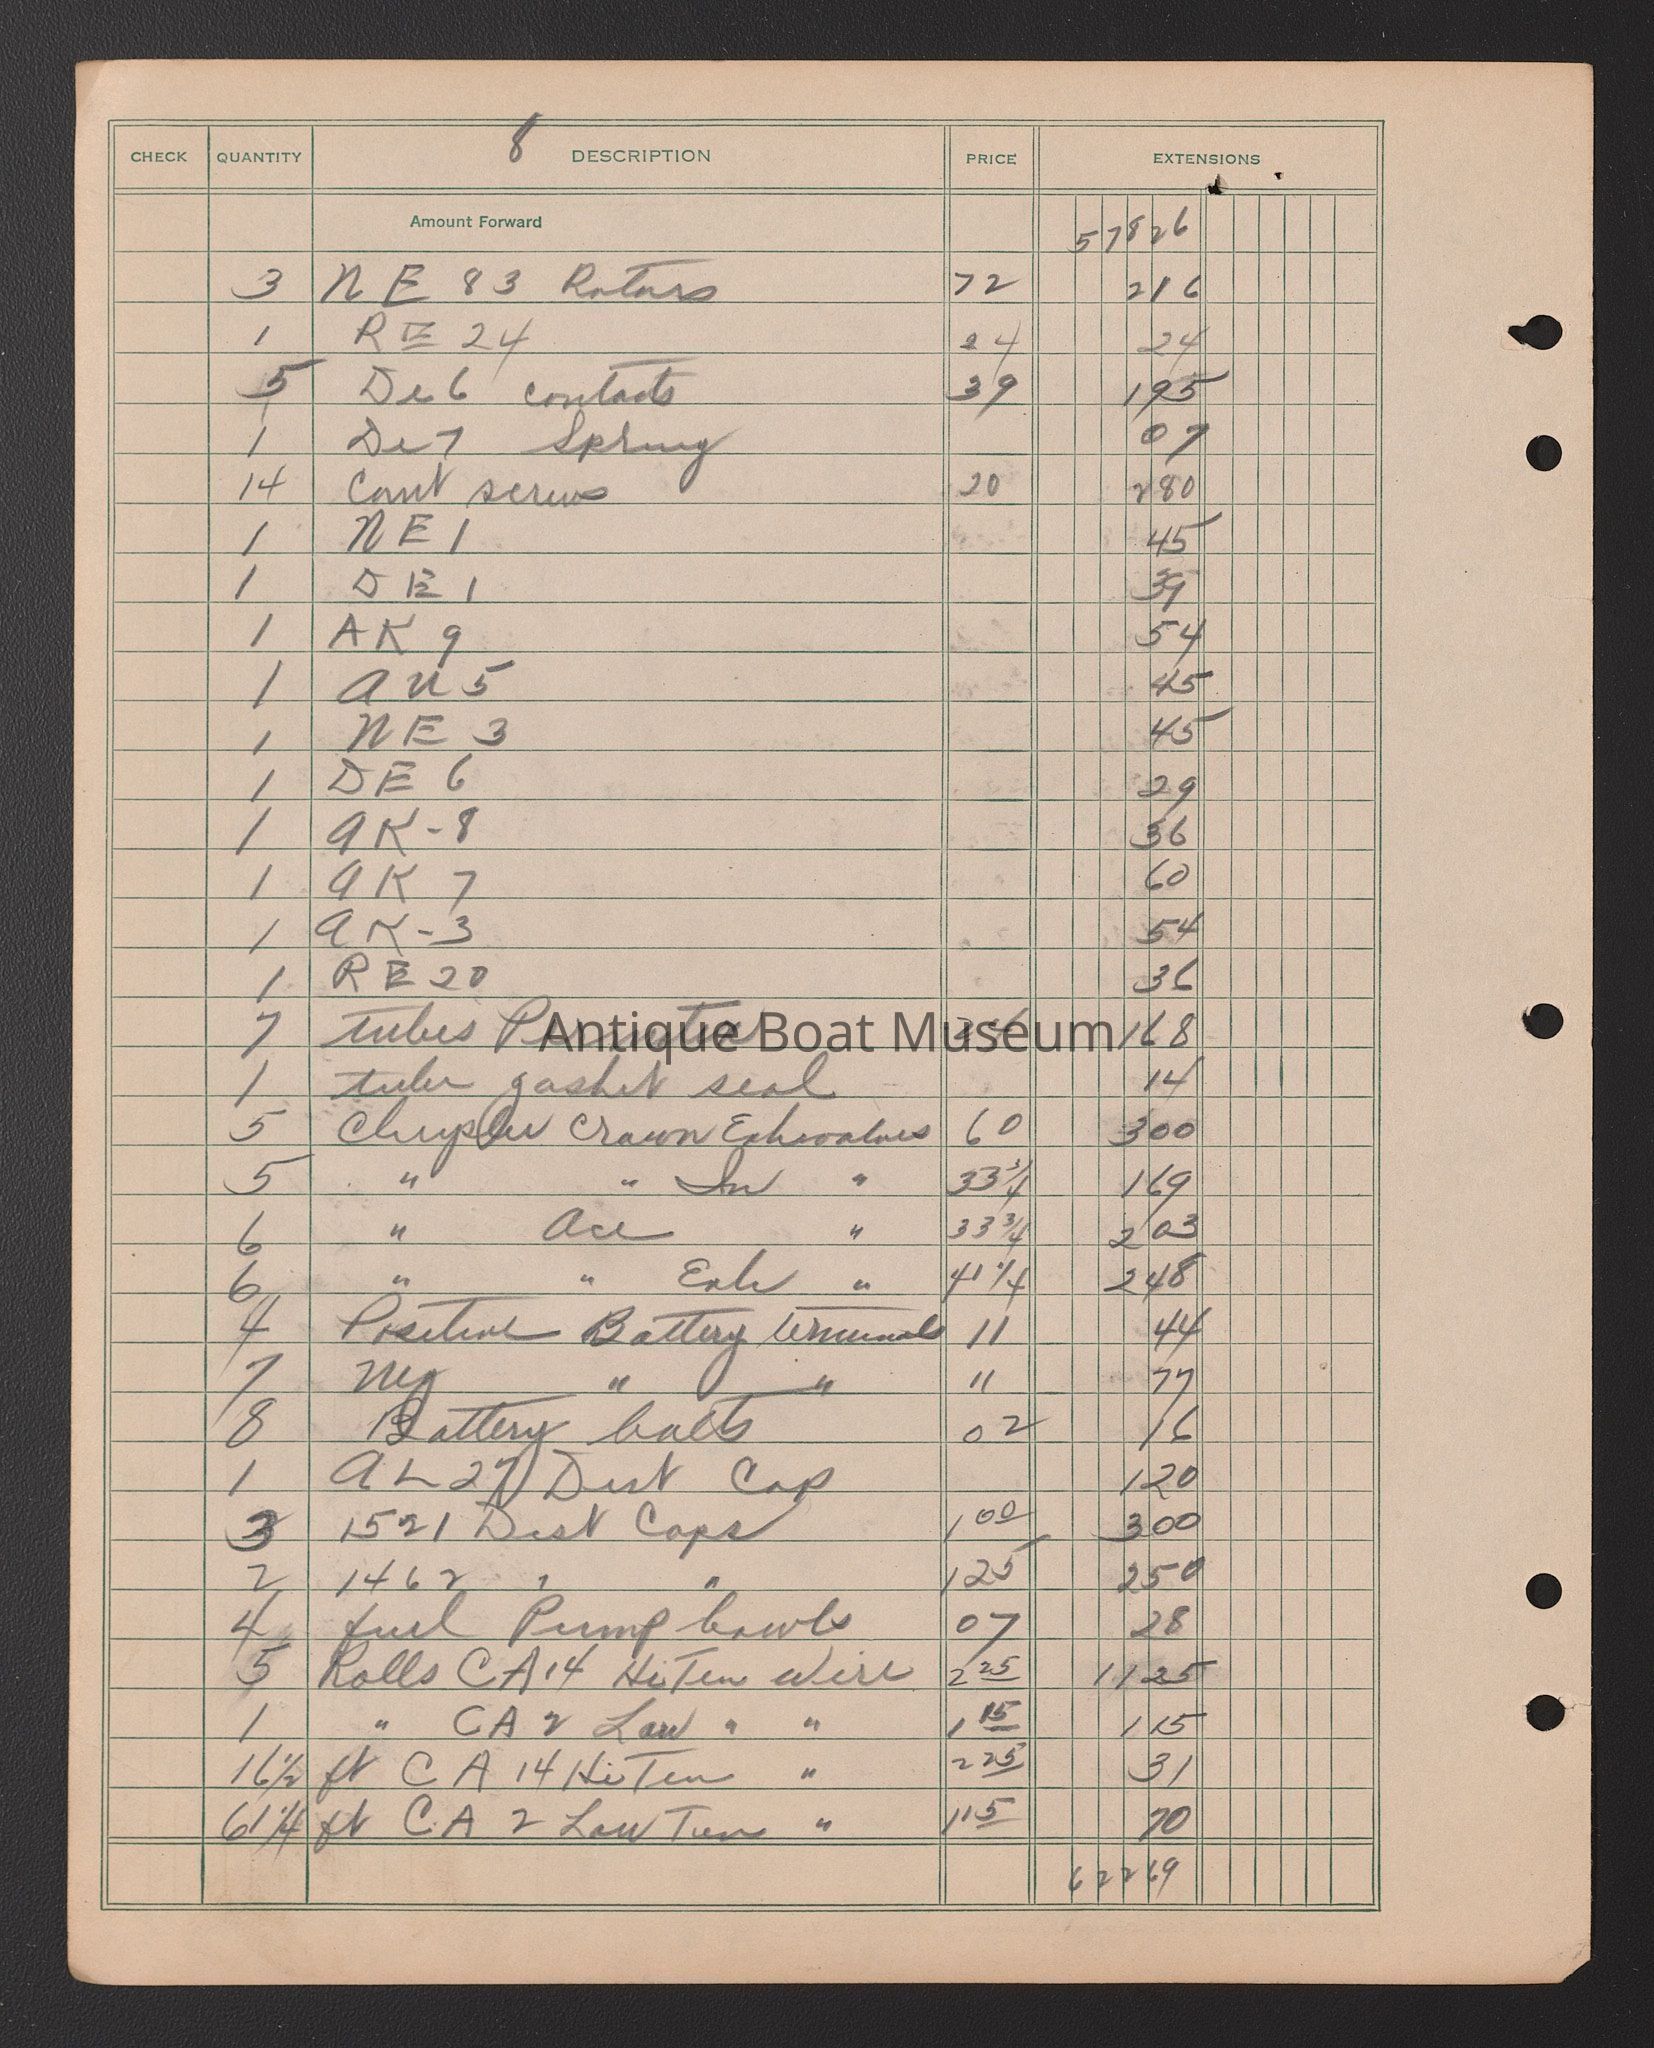 8
CHECK QUANTITY DESCRIPTION PRICE EXTENSIONS
Amount Forward 57826
3 NE 83 Rotors 72 216
1 RE 24 24 24
5 De6 contacts 39 195
1 De7 Spring 07
14 Cont screws 20 280
1 NE 1 45
1 DE 1 39
1 AK 9 54
1 AN 5 45
1 NE 3 45
1 DE 6 29
1 AK-8 36
1 AK 7 60
1 AK-3 54
1 RE 20 36
7 tubes Permatex 24 168
1 tube gasket seal 14
5 Chrysler Crown Exh valves 60 300
5 " " In " 33 3/4 169
6 " Ace " 33 3/4 203
6 " " Exh " 41 1/4 248
4 Positive Battery terminals 11 44
7 Neg " " 11 77
8 Battery bolts 02 16
1 AL 27 Dist Cap 120
3 1521 Dist Caps 1 00 300
2 1462 " " 125 250
4 fuel Pump bowls 07 28
5 Rolls CA14 Hi Ten wire 2 25 1125
1 " CA 2 Low " " 1 15 115
16 1/2 ft CA 14 Hi Ten " 2 25 31
61 1/4 ft CA 2 Low Ten " 1 15 70
62269
Antique Boat Museum